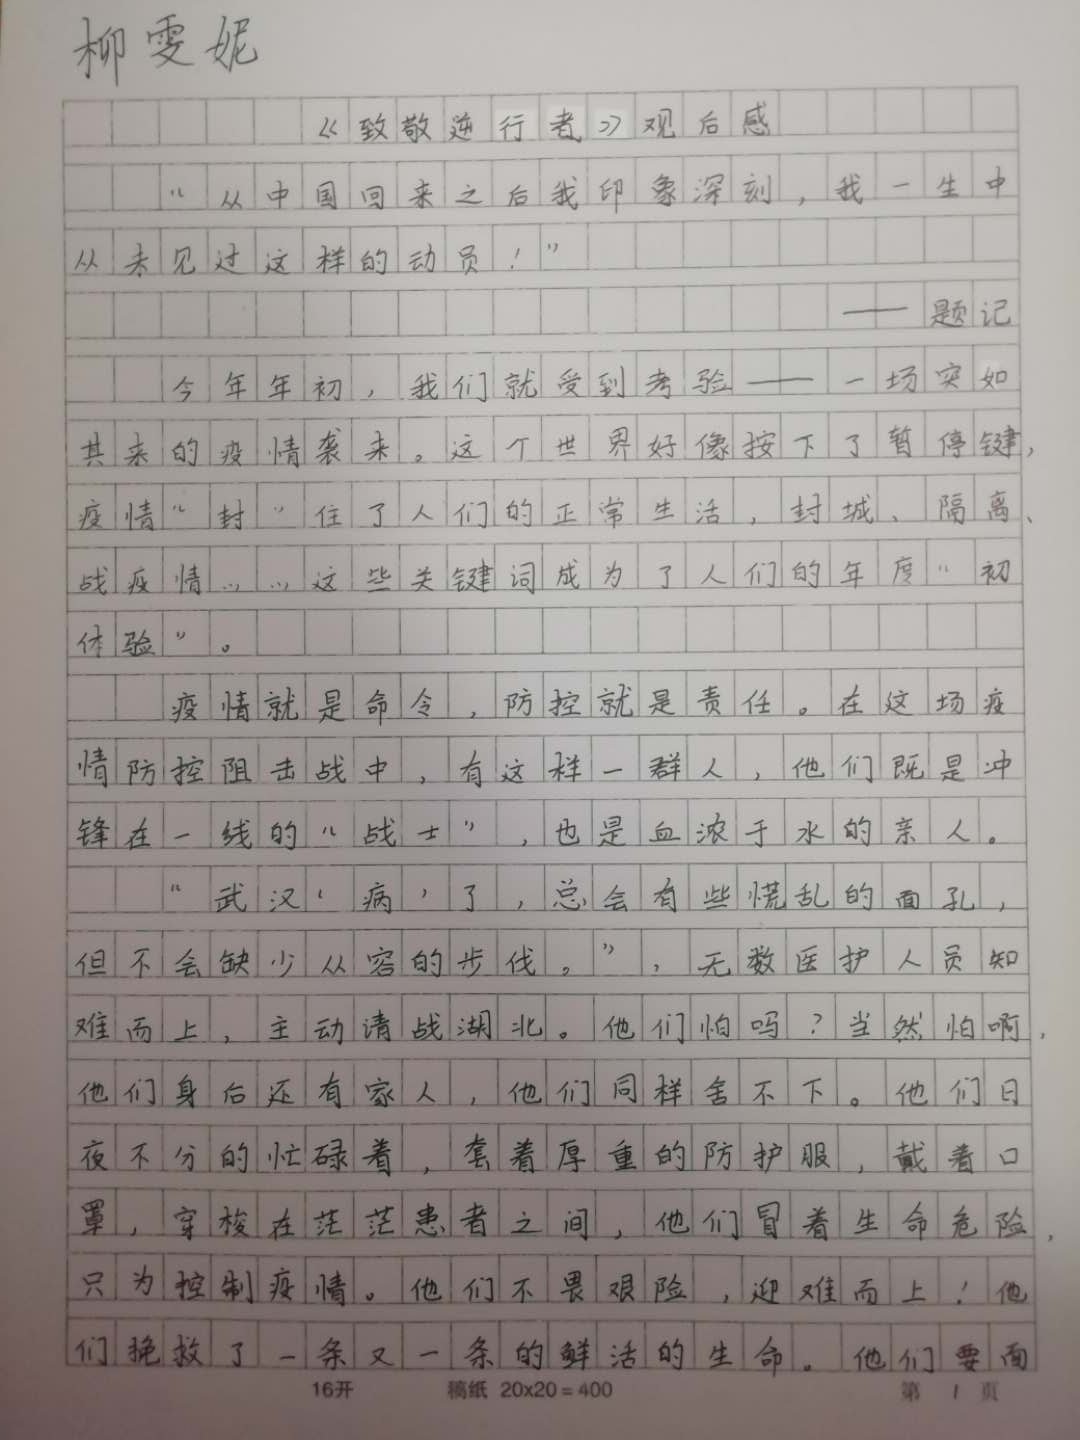 柳雯妮
《致敬逆行者》观后感
“从中国回来之后我印象深刻，我一生中
从未见过这样的动员！”
——题记
今年年初，我们就受到考验——一场突如
其来的疫情袭来。这个世界好像按下了暂停键，
疫情“封”住了人们的正常生活，封城、隔离、
战疫情……这些关键词成为了人们的年度“初
体验”。
疫情就是命令，防控就是责任。在这场疫
情防控阻击战中，有这样一群人，他们既是冲
锋在一线的“战士”，也是血浓于水的亲人。
“武汉‘病’了，总会有些慌乱的面孔，
但不会缺少从容的步伐。”，无数医护人员知
难而上，主动请战湖北。他们怕吗？当然怕啊，
他们身后还有家人，他们同样舍不下。他们日
夜不分的忙碌着，套着厚重的防护服，戴着口
罩，穿梭在茫茫患者之间，他们冒着生命危险，
只为控制疫情。他们不畏艰险，迎难而上！他
们挽救了一条又一条的鲜活的生命。他们要面
16开 稿纸 20x20=400 第 1 页